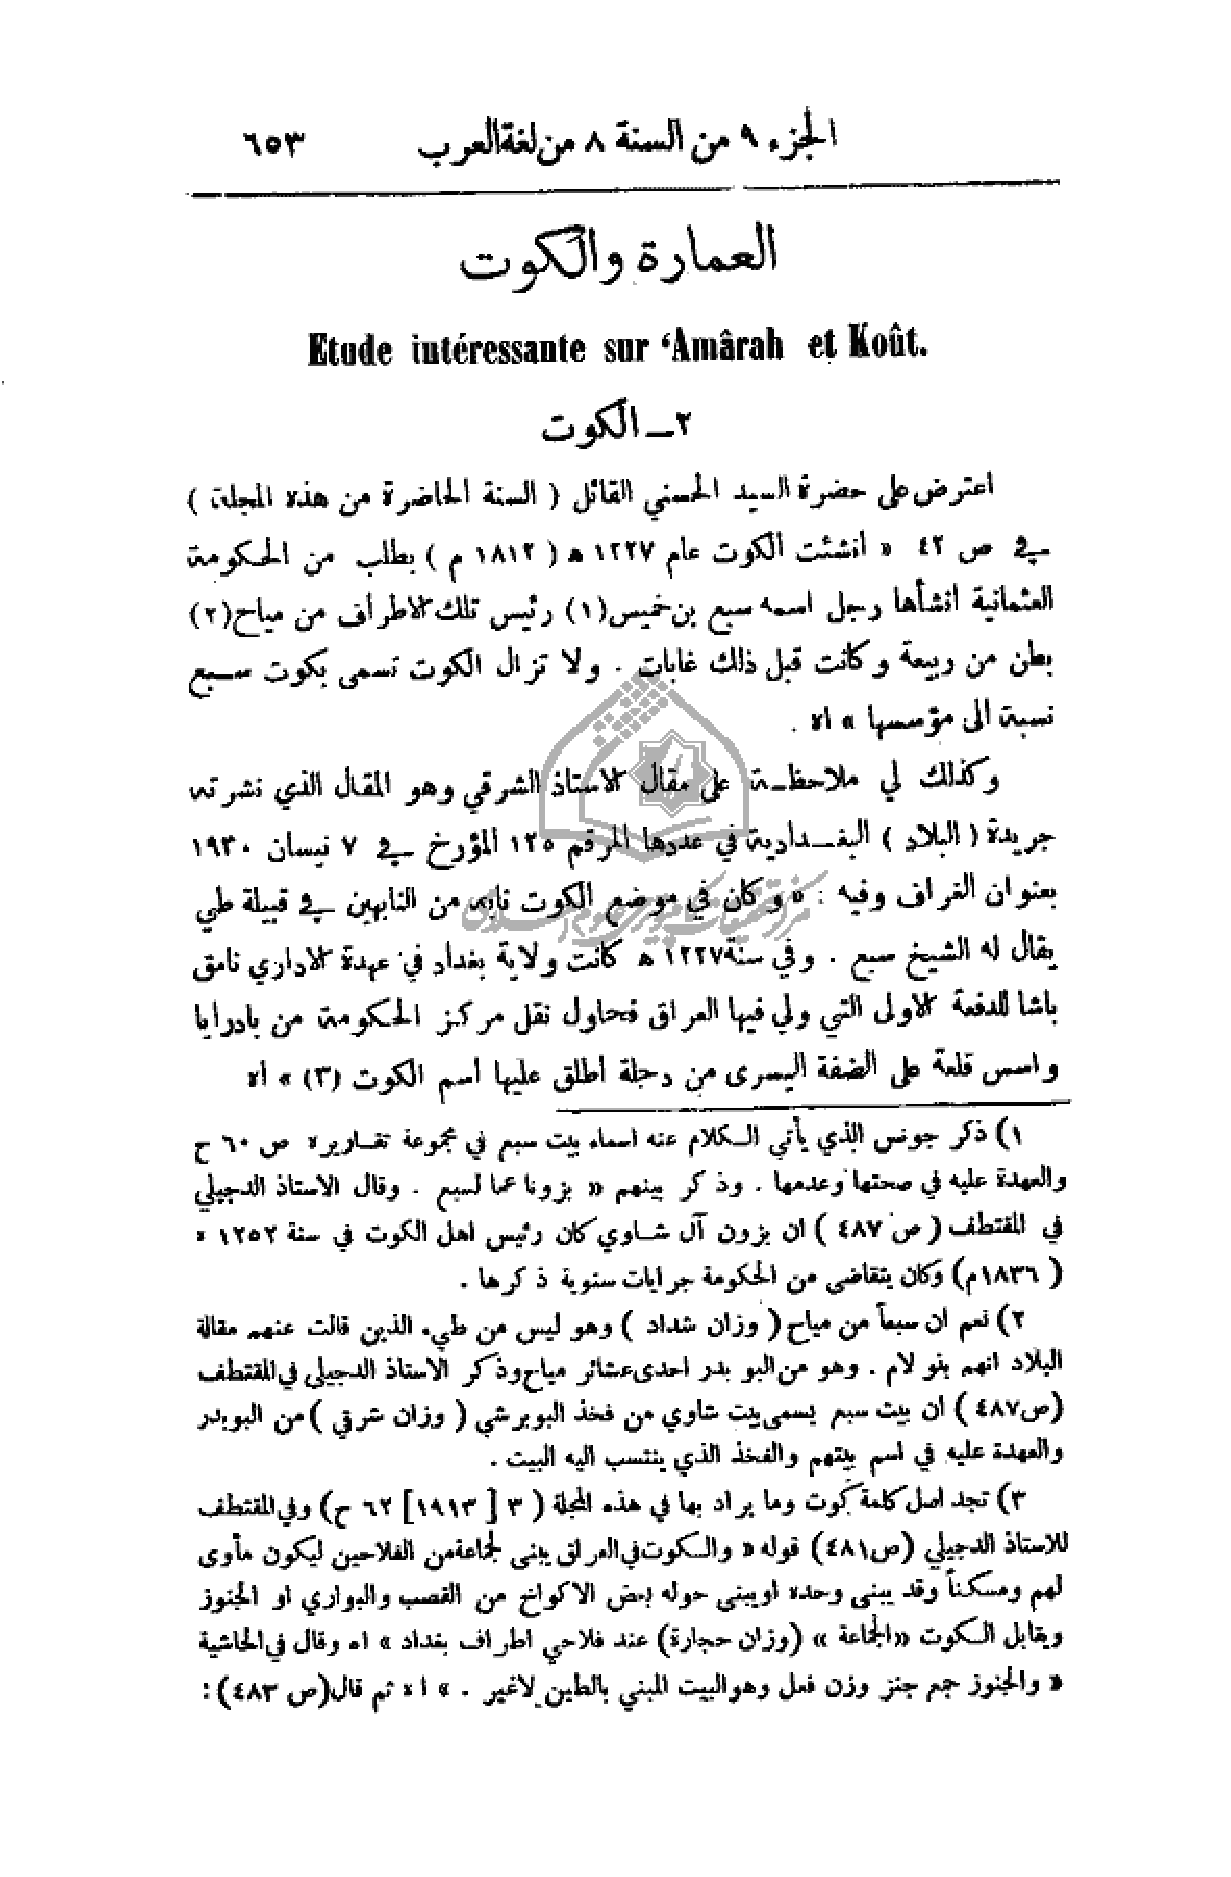 الجزء ٩ من السنة ٨ من لغة العرب ٦٥٣
العمارة والكوت
Etude intéressante sur ‘Amârah et Koût.
٢ ــ الكوت
اعترض على حضرة السيد الحسني القائل ( السنة الحاضرة من هذه المجلة )
في ص ٤٢ « انشئت الكوت عام ١٢٢٧ ه ( ١٨١٢ م ) بطلب من الحكومة
العثمانية أنشأها رجل اسمه سبع بن خميس (١) رئيس تلك الاطراف من مياح (٢)
بطن من ربيعة وكانت قبل ذلك غابات . ولا تزال الكوت تسمى بكوت سبع
نسبة الى مؤسسها » اه .
وكذلك لي ملاحظة على مقال الاستاذ الشرقي وهو المقال الذي نشرته
جريدة ( البلاد ) البغدادية في عددها المرقم ١٢٥ المؤرخ في ٧ نيسان ١٩٣٠
بعنوان الغراف وفيه : « وكان في موضع الكوت نابه من النابهين في قبيلة طي
يقال له الشيخ سبع . وفي سنة ١٢٢٧ ه كانت ولاية بغداد في عهدة الاداري نامق
باشا للدفعة الاولى التي ولي فيها العراق فحاول نقل مركز الحكومة من بادرايا
واسس قلعة على الضفة اليسرى من دجلة أطلق عليها أسم الكوت (٣) » أه
١) ذكر جونس الذي يأتي الكلام عنه اسماء بيت سبع في مجموعة تقاريره ص ٦٠ ح
والعهدة عليه في صحتها وعدمها . وذكر بينهم « بزونا عما لسبع . وقال الاستاذ الدجيلي
في المقتطف ( ص ٤٨٧ ) ان بزون آل شاوي كان رئيس اهل الكوت في سنة ١٢٥٢ ه
( ١٨٣٦م ) وكان يتقاضى من الحكومة جرايات سنوية ذكرها .
٢) نعم ان سبعاً من مياح ( وزان شداد ) وهو ليس من طيء الذين قالت عنهم مقالة
البلاد انهم بنو لام . وهو من البو بدر احدى عشائر مياح وذكر الاستاذ الدجيلي في المقتطف
(ص ٤٨٧ ) ان بيت سبع يسمى بيت شاوي من فخذ البوبرشي ( وزان شرقي ) من البوبدر
والعهدة عليه في اسم بيتهم والفخذ الذي ينتسب اليه البيت .
٣) تجد اصل كلمة كوت وما يراد بها في هذه المجلة ( ٣ [ ١٩١٣ ] ٦٢ ح) وفي المقتطف
للاستاذ الدجيلي (ص ٤٨١) قوله « والكوت في العراق يبنى لجماعة من الفلاحين ليكون مأوى
لهم ومسكناً وقد يبنى وحده او يبنى حوله بعض الاكواخ من القصب والبواري او الجنوز
ويقابل الكوت «الجماعة » (وزان حجارة) عند فلاحي اطراف بغداد » اه وقال في الحاشية
« والجنوز جمع جنز وزن فعل وهو البيت المبني بالطين لاغير . » اه ثم قال (ص ٤٨٣) :